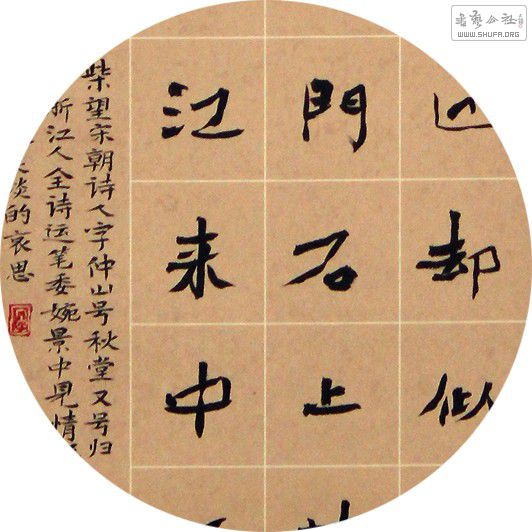 书艺公社
WWW.SHUFA.ORG
却似
門石上
江来中
柴望宋朝诗人字仲山号秋堂又号归
浙江人全诗运笔委婉景中見情
淡的哀思